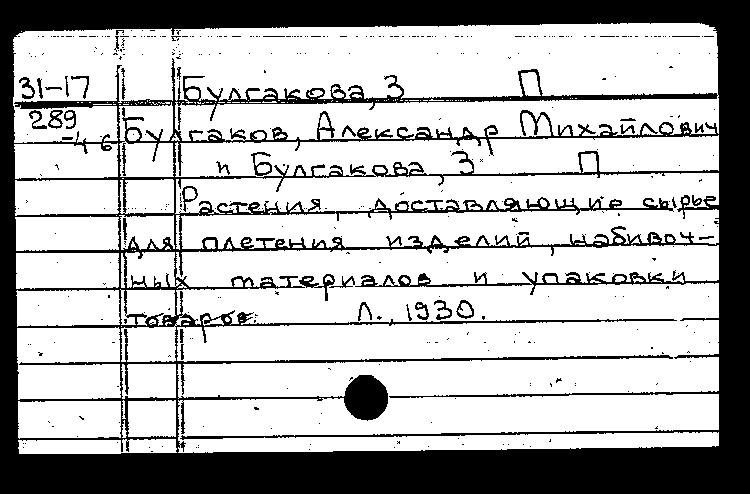 31-17 Булгакова, З П
289
-46 Булгаков, Александр Михайлович
и Булгакова, З П
Растения, доставляющие сырье
для плетения изделий, набивоч-
ных материалов и упаковки
товаров. Л., 1930.